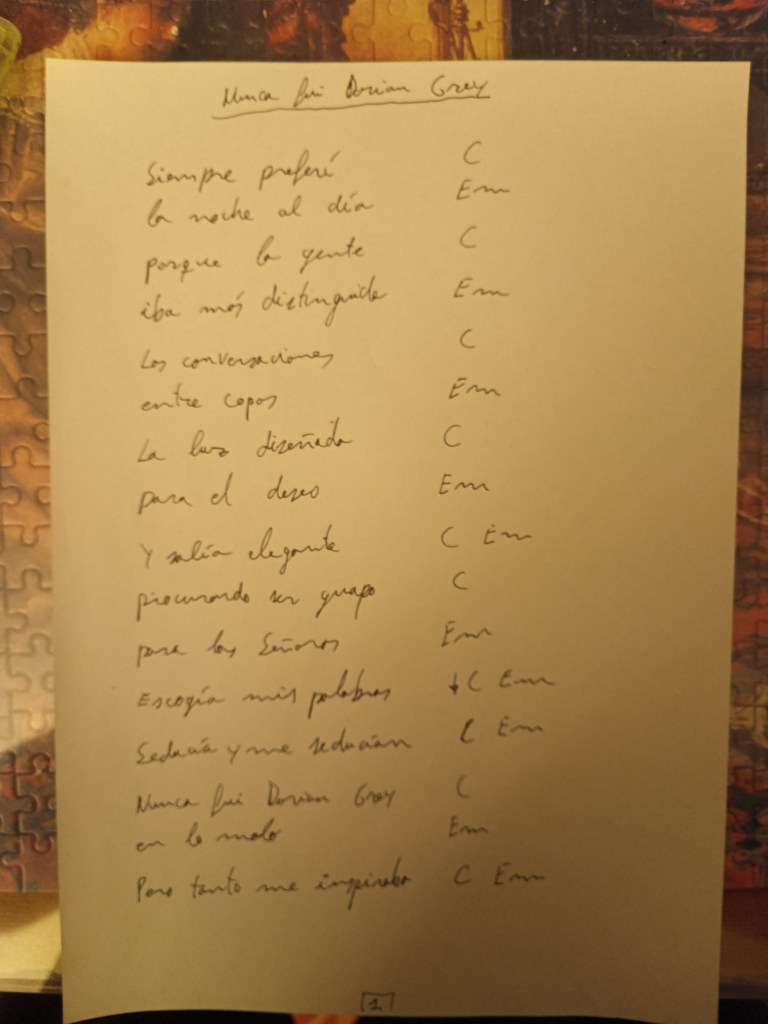 Nunca fui Dorian Gray
Siempre preferí C
la noche al día Em
porque la gente C
iba más distinguida Em
Las conversaciones C
entre copas Em
La luz diseñada C
para el deseo Em
Y salía elegante C Em
procurando ser guapo C
para las Señoras Em
Escogía mis palabras C Em
Seducía y me seducían C Em
Nunca fui Dorian Gray C
en lo malo Em
Pero tanto me inspiraba C Em
1